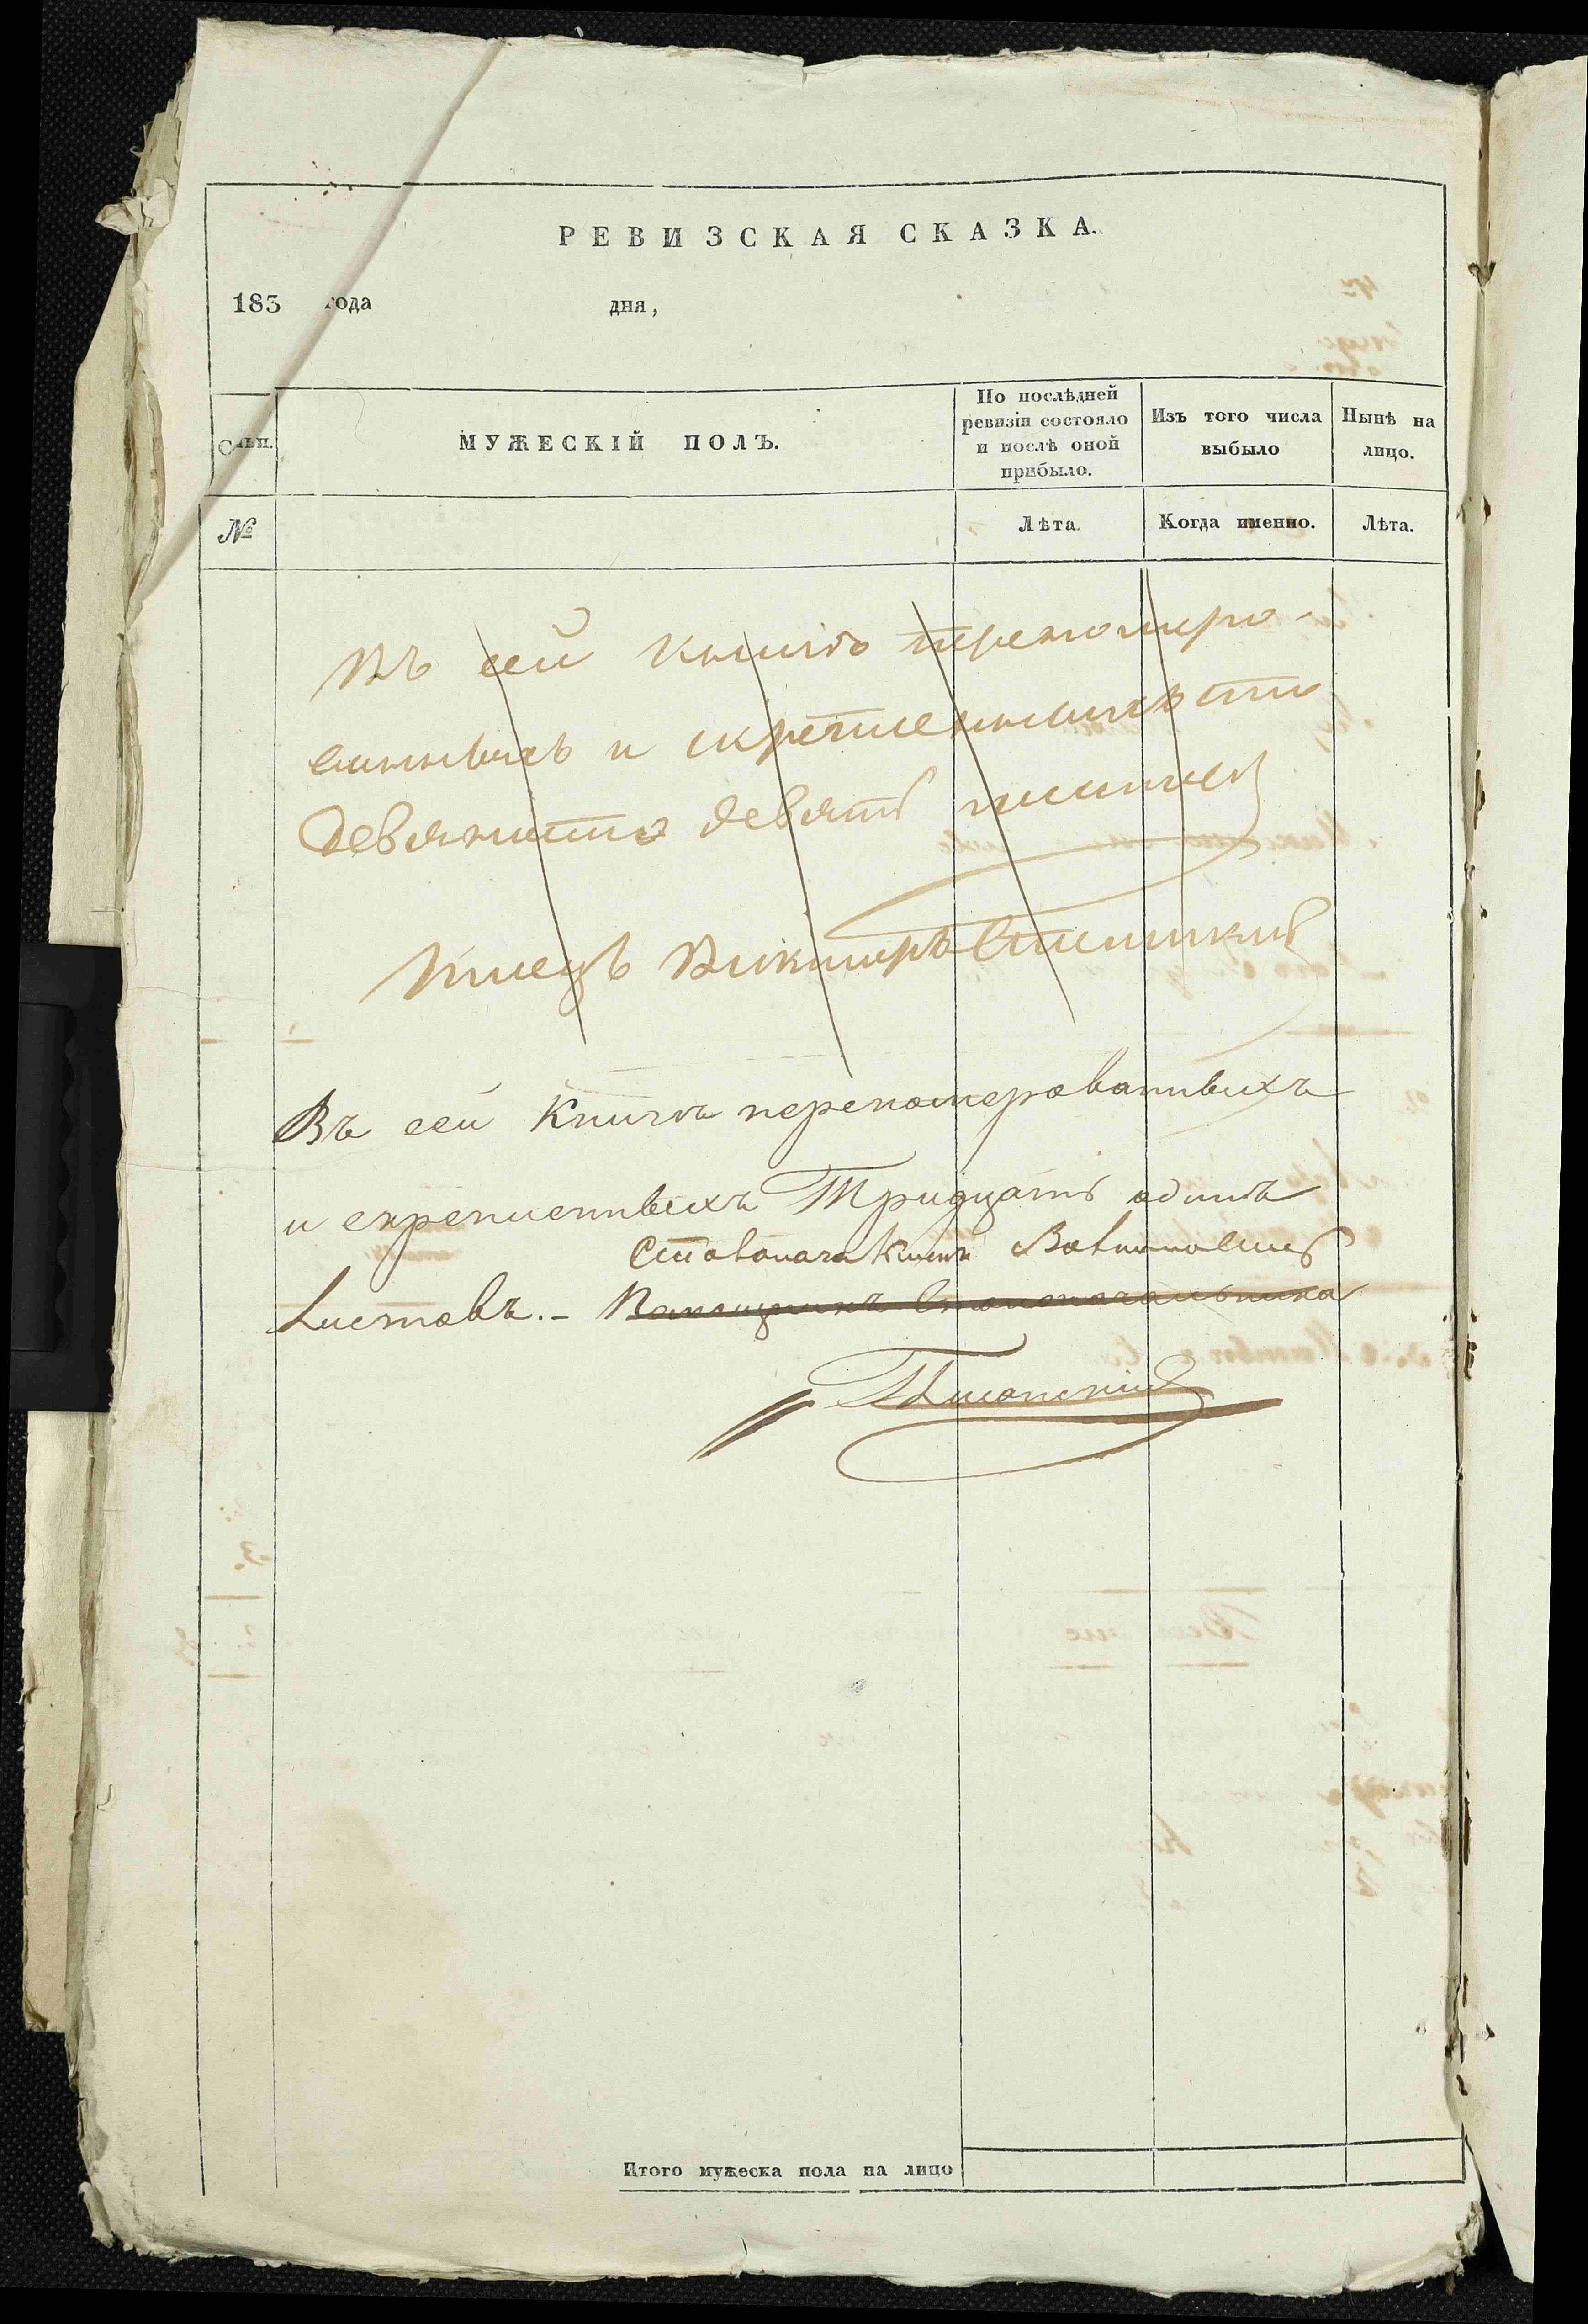 РЕВИЗСКАЯ СКАЗКА.
183 года дня,
МУЖЕСКІЙ ПОЛЪ.
По послѣдней ревизіи состояло и послѣ оной прибыло.
Изъ того числа выбыло
Нынѣ на лицо.
№
Лѣта.
Когда именно.
Лѣта.
Въ сей книгѣ
и скрепленныхъ
Девяносто девять листовъ
Писецъ Викторъ
Въ сей Книгѣ переномерованныхъ
и скрепленныхъ Тридцать одинъ
Листовъ.–
Итого мужеска пола на лицо